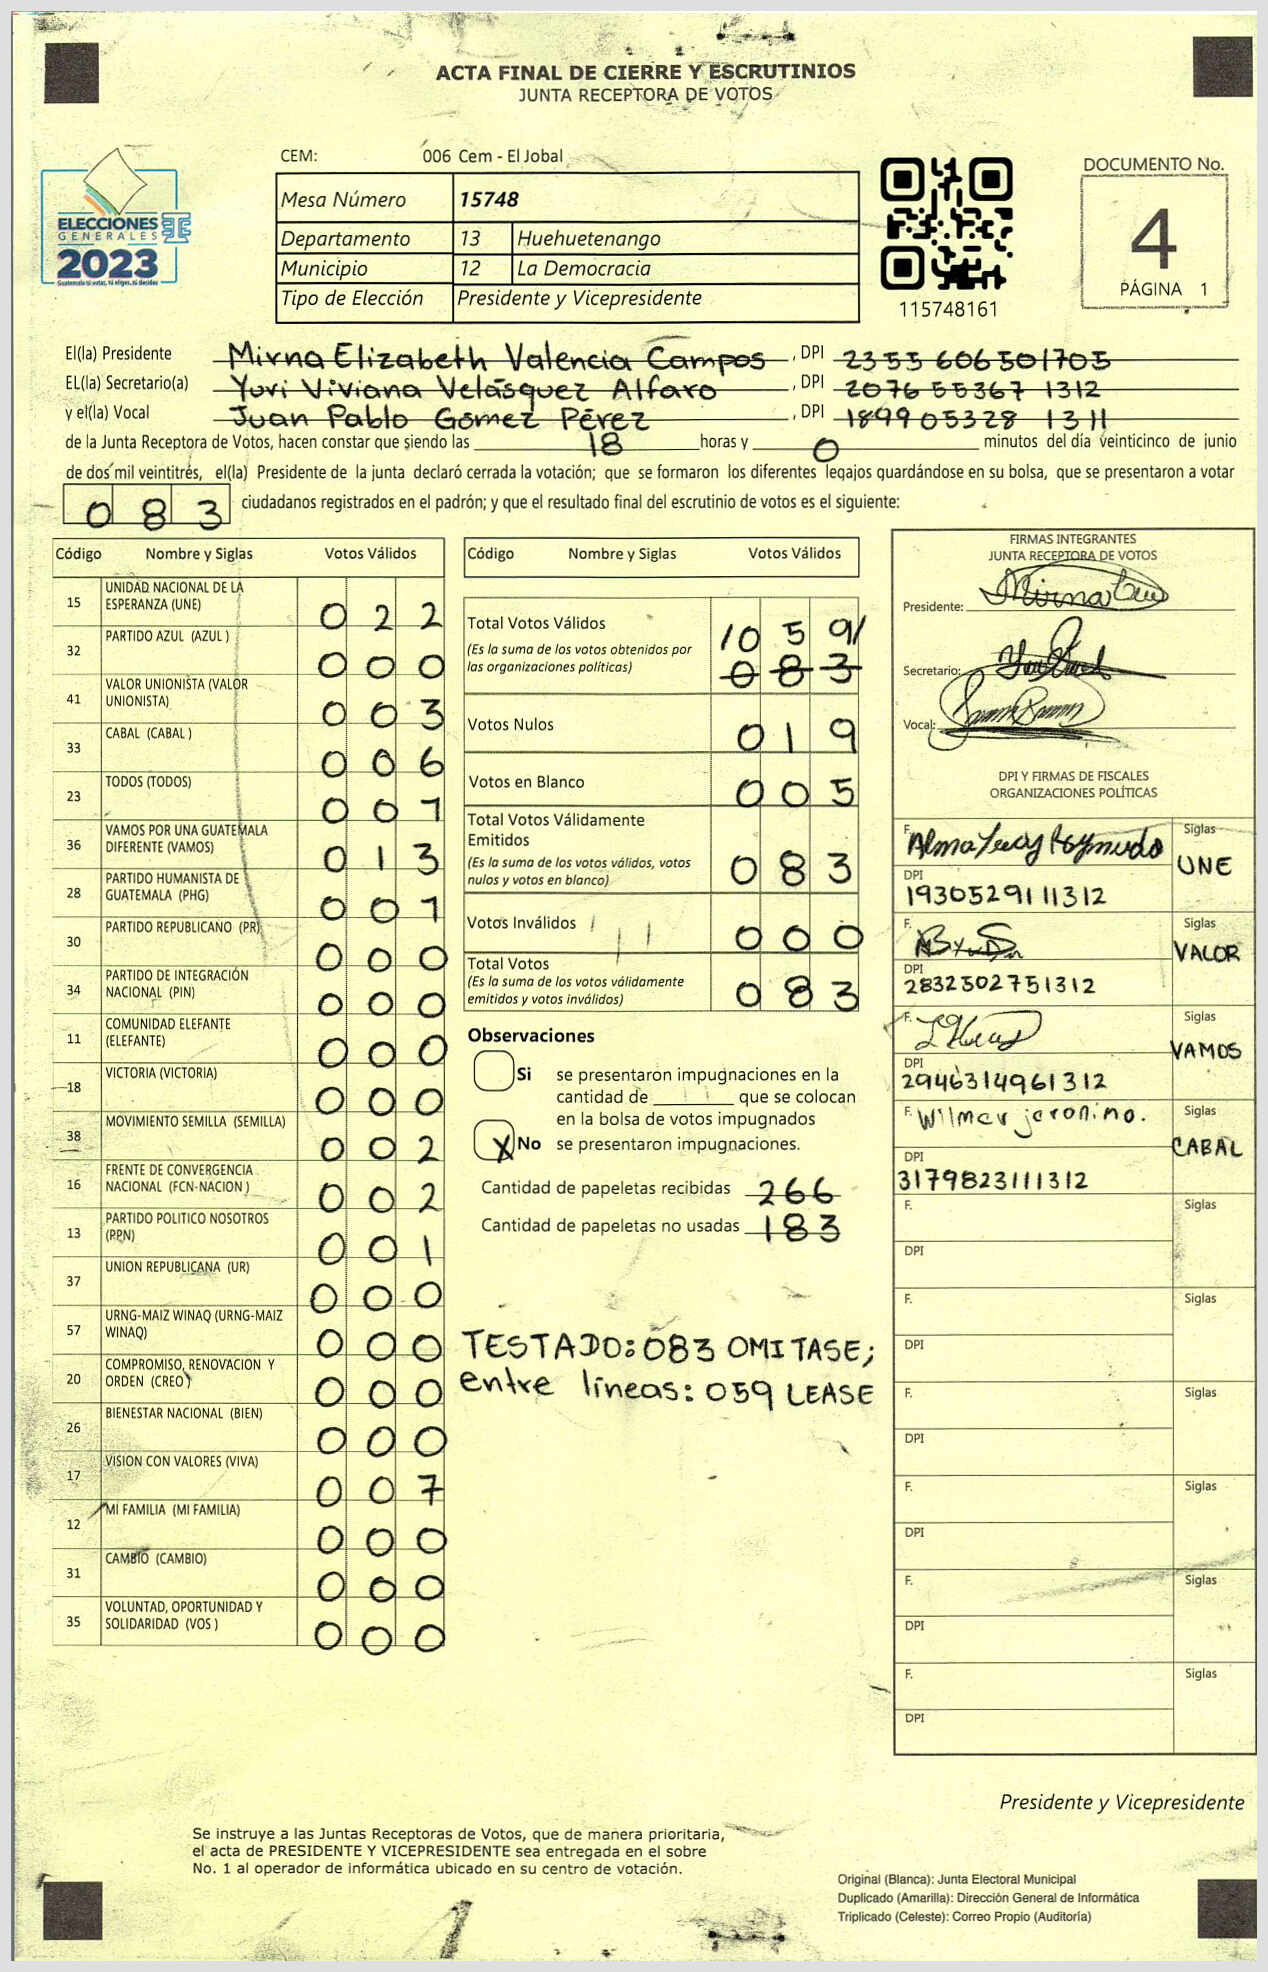 ACTA FINAL DE CIERRE Y ESCRUTINIOS
JUNTA RECEPTORA DE VOTOS
CEM: 006 Cem - El Jobal
DOCUMENTO No.
4
PÁGINA 1
ELECCIONES
GENERALES
2023
Guatemala tú votas, tú eliges, tú decides
Mesa Número 15748
Departamento 13 Huehuetenango
Municipio 12 La Democracia
Tipo de Elección Presidente y Vicepresidente
115748161
El(la) Presidente Mirna Elizabeth Valencia Campos , DPI 2355 606501705
EL(la) Secretario(a) Yuri Viviana Velásquez Alfaro , DPI 2076 55367 1312
y el(la) Vocal Juan Pablo Gómez Pérez , DPI 189905328 1311
de la Junta Receptora de Votos, hacen constar que siendo las 18 horas y 0 minutos del día veinticinco de junio
de dos mil veintitrés, el(la) Presidente de la junta declaró cerrada la votación; que se formaron los diferentes legajos guardándose en su bolsa, que se presentaron a votar
083 ciudadanos registrados en el padrón; y que el resultado final del escrutinio de votos es el siguiente:
Código Nombre y Siglas Votos Válidos
15 UNIDAD NACIONAL DE LA
ESPERANZA (UNE) 022
32 PARTIDO AZUL (AZUL ) 000
41 VALOR UNIONISTA (VALOR
UNIONISTA) 003
33 CABAL (CABAL ) 006
23 TODOS (TODOS) 001
36 VAMOS POR UNA GUATEMALA
DIFERENTE (VAMOS) 013
28 PARTIDO HUMANISTA DE
GUATEMALA (PHG) 001
30 PARTIDO REPUBLICANO (PR) 000
34 PARTIDO DE INTEGRACIÓN
NACIONAL (PIN) 000
11 COMUNIDAD ELEFANTE
(ELEFANTE) 000
18 VICTORIA (VICTORIA) 000
38 MOVIMIENTO SEMILLA (SEMILLA) 002
16 FRENTE DE CONVERGENCIA
NACIONAL (FCN-NACION ) 002
13 PARTIDO POLITICO NOSOTROS
(PPN) 001
37 UNION REPUBLICANA (UR) 000
57 URNG-MAIZ WINAQ (URNG-MAIZ
WINAQ) 000
20 COMPROMISO, RENOVACION Y
ORDEN (CREO ) 000
26 BIENESTAR NACIONAL (BIEN) 000
17 VISION CON VALORES (VIVA) 007
12 MI FAMILIA (MI FAMILIA) 000
31 CAMBIO (CAMBIO) 000
35 VOLUNTAD, OPORTUNIDAD Y
SOLIDARIDAD (VOS ) 000
Código Nombre y Siglas Votos Válidos
Total Votos Válidos /059/
(Es la suma de los votos obtenidos por
las organizaciones políticas) 083
Votos Nulos 019
Votos en Blanco 005
Total Votos Válidamente
Emitidos
(Es la suma de los votos válidos, votos
nulos y votos en blanco) 083
Votos Inválidos 000
Total Votos
(Es la suma de los votos válidamente
emitidos y votos inválidos) 083
Observaciones
Si se presentaron impugnaciones en la
cantidad de ________ que se colocan
en la bolsa de votos impugnados
X No se presentaron impugnaciones.
Cantidad de papeletas recibidas 266
Cantidad de papeletas no usadas 183
TESTADO: 083 OMITASE;
entre líneas: 059 LEASE
FIRMAS INTEGRANTES
JUNTA RECEPTORA DE VOTOS
Presidente: Mirna
Secretario:
Vocal:
DPI Y FIRMAS DE FISCALES
ORGANIZACIONES POLÍTICAS
F. Siglas
UNE
DPI
1930529111312
F. Siglas
VALOR
DPI
2832502751312
F. Siglas
VAMOS
DPI
2946314961312
F. Wilmer jeronimo. Siglas
CABAL
DPI
3179823111312
F. Siglas
DPI
F. Siglas
DPI
F. Siglas
DPI
F. Siglas
DPI
F. Siglas
DPI
F. Siglas
DPI
Presidente y Vicepresidente
Se instruye a las Juntas Receptoras de Votos, que de manera prioritaria,
el acta de PRESIDENTE Y VICEPRESIDENTE sea entregada en el sobre
No. 1 al operador de informática ubicado en su centro de votación.
Original (Blanca): Junta Electoral Municipal
Duplicado (Amarilla): Dirección General de Informática
Triplicado (Celeste): Correo Propio (Auditoría)